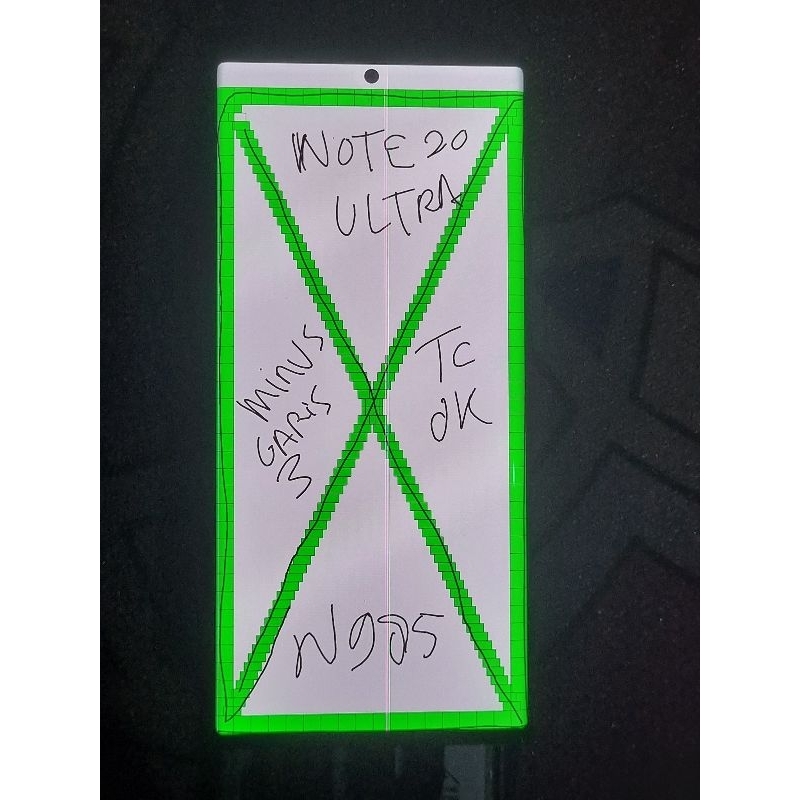 NOTE 20
ULTRA
MINUS
GARIS
3
TC
OK
N985